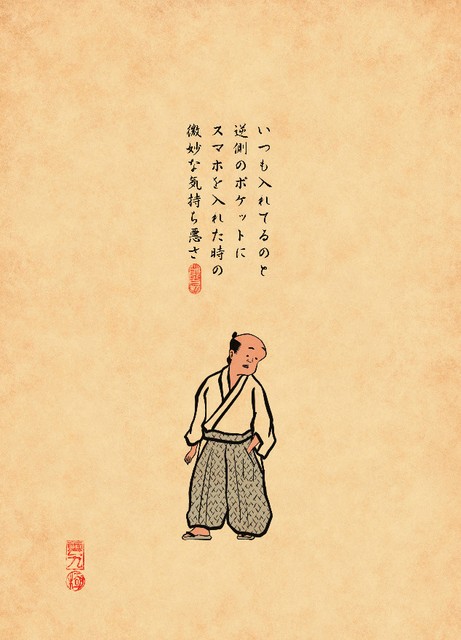 いつも入れてるのと
逆側のポケットに
スマホを入れた時の
微妙な気持ち悪さ